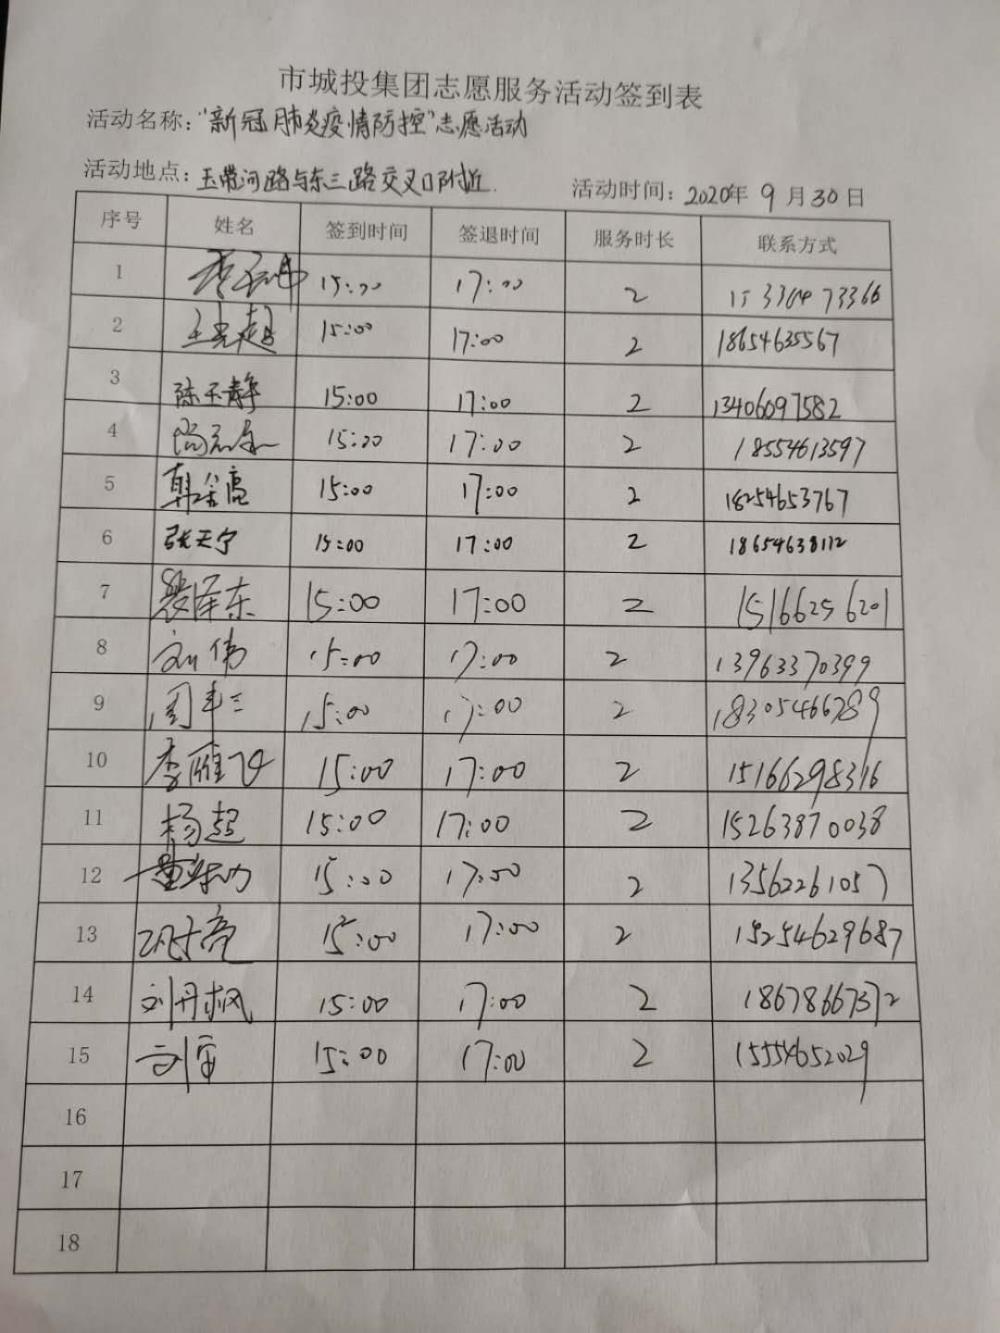 市城投集团志愿服务活动签到表
活动名称："新冠肺炎疫情防控"志愿活动
活动地点：玉带河路与东三路交叉口附近. 活动时间：2020年 9 月 30 日
序号 姓名 签到时间 签退时间 服务时长 联系方式
1 15:00 17:00 2
2 15:00 17:00 2 18654635567
3 陈玉静 15:00 17:00 2 13406097582
4 15:00 17:00 2 18554613597
5 15:00 17:00 2 18254653767
6 张天宁 15:00 17:00 2
7 泽东 15:00 17:00 2 15166256201
8 刘伟 15:00 17:00 2 13963370399
9 周丰三 15:00 17:00 2 18305466789
10 李雁飞 15:00 17:00 2 15166298316
11 杨超 15:00 17:00 2 15263870038
12 15:00 17:00 2 13562261057
13 15:00 17:00 2 15254629687
14 刘丹枫 15:00 17:00 2 18678667372
15 15:00 17:00 2 15554652029
16
17
18